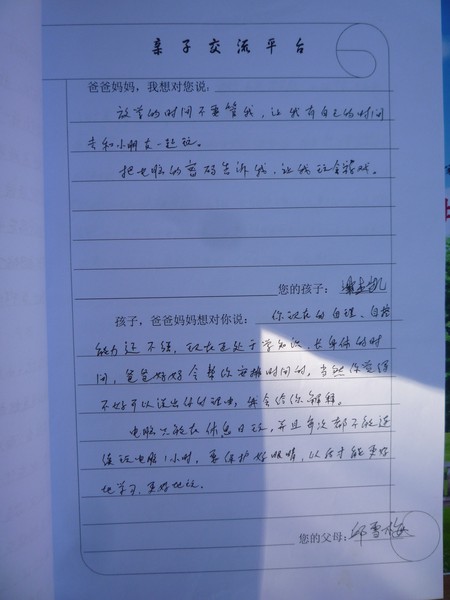 亲子交流平台
爸爸妈妈，我想对您说：
放学的时间不要管我，让我有自己的时间
去和小朋友一起玩。
把电脑的密码告诉我，让我玩会游戏。
您的孩子：
孩子，爸爸妈妈想对你说：你现在的自理、自控
能力还不强，现在还处于学知识、长身体的时
间，爸爸妈妈会帮你安排时间的，当然你觉得
不好可以说出你的理由，我会给你解释。
电脑只能在休息日玩，并且每次都不能连
续玩电脑1小时，要保护好眼睛，以后才能更好
地学习，更好地玩。
您的父母：邱雪梅